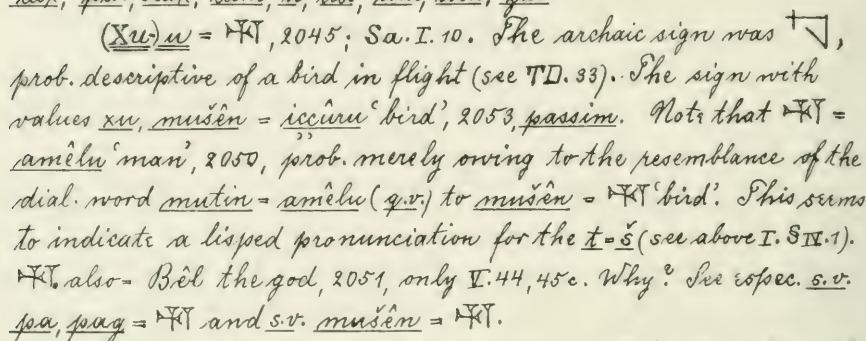 (Xu-)u = 𒄷, 2045; Sa. I. 10. The archaic sign was
prob. descriptive of a bird in flight (see TD. 33). The sign with
values xu, mušên = iccûru 'bird', 2053, passim. Note that 𒄷 =
amêlu 'man', 2050, prob. merely owing to the resemblance of the
dial. word mutin = amêlu (q.v.) to mušên = 𒄷 'bird'. This seems
to indicate a lisped pronunciation for the t = š (see above I. § IV. 1).
𒄷 also = Bêl the god, 2051, only V. 44, 45c. Why? See espec. s.v.
pa, pag = 𒄷 and s.v. mušên = 𒄷.